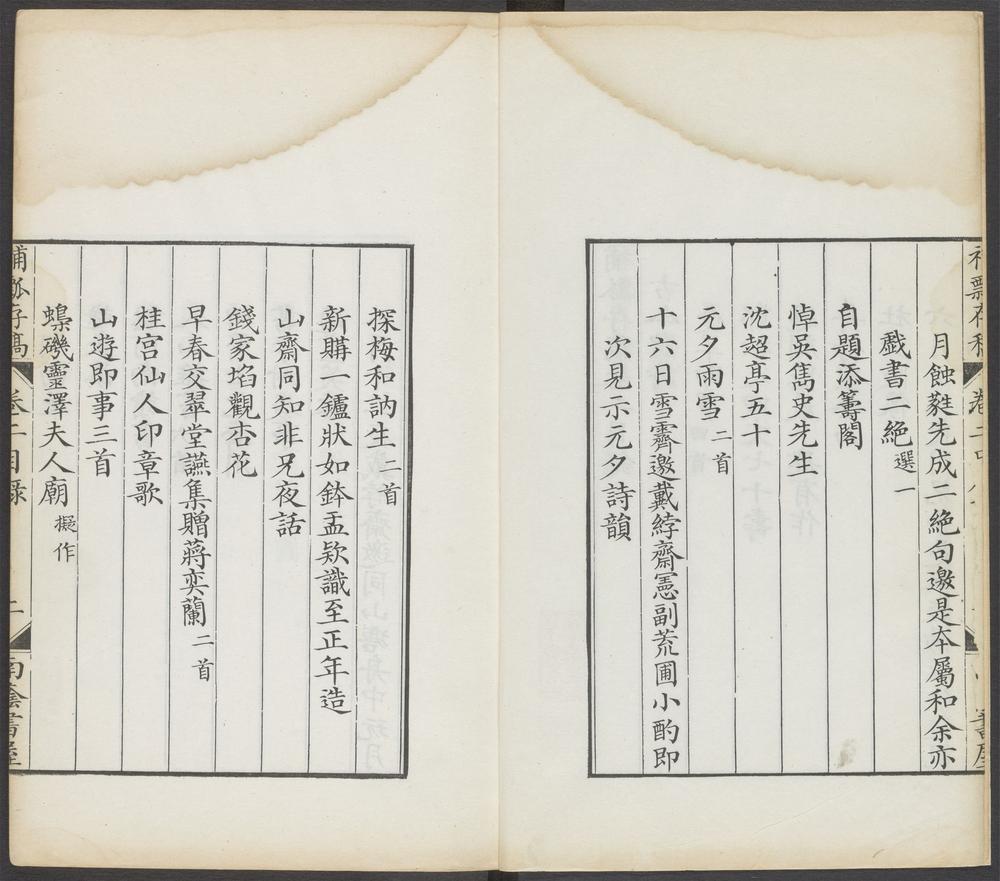 月蝕蕤先成二絶句邀是本屬和余亦
戲書二絶 選一
自題添籌閣
悼吳雋史先生
沈超亭五十
元夕雨雪 二首
十六日雪霽邀戴綍齋憲副荒圃小酌即
次見示元夕詩韻
探梅和訥生 二首
新購一鑪狀如鉢盂欵識至正年造
山齋同知非兄夜話
錢家焰觀杏花
早春交翠堂讌集贈蔣奕蘭 二首
桂宮仙人印章歌
山遊即事三首
蟂磯靈澤夫人廟 擬作
卷二目錄
二